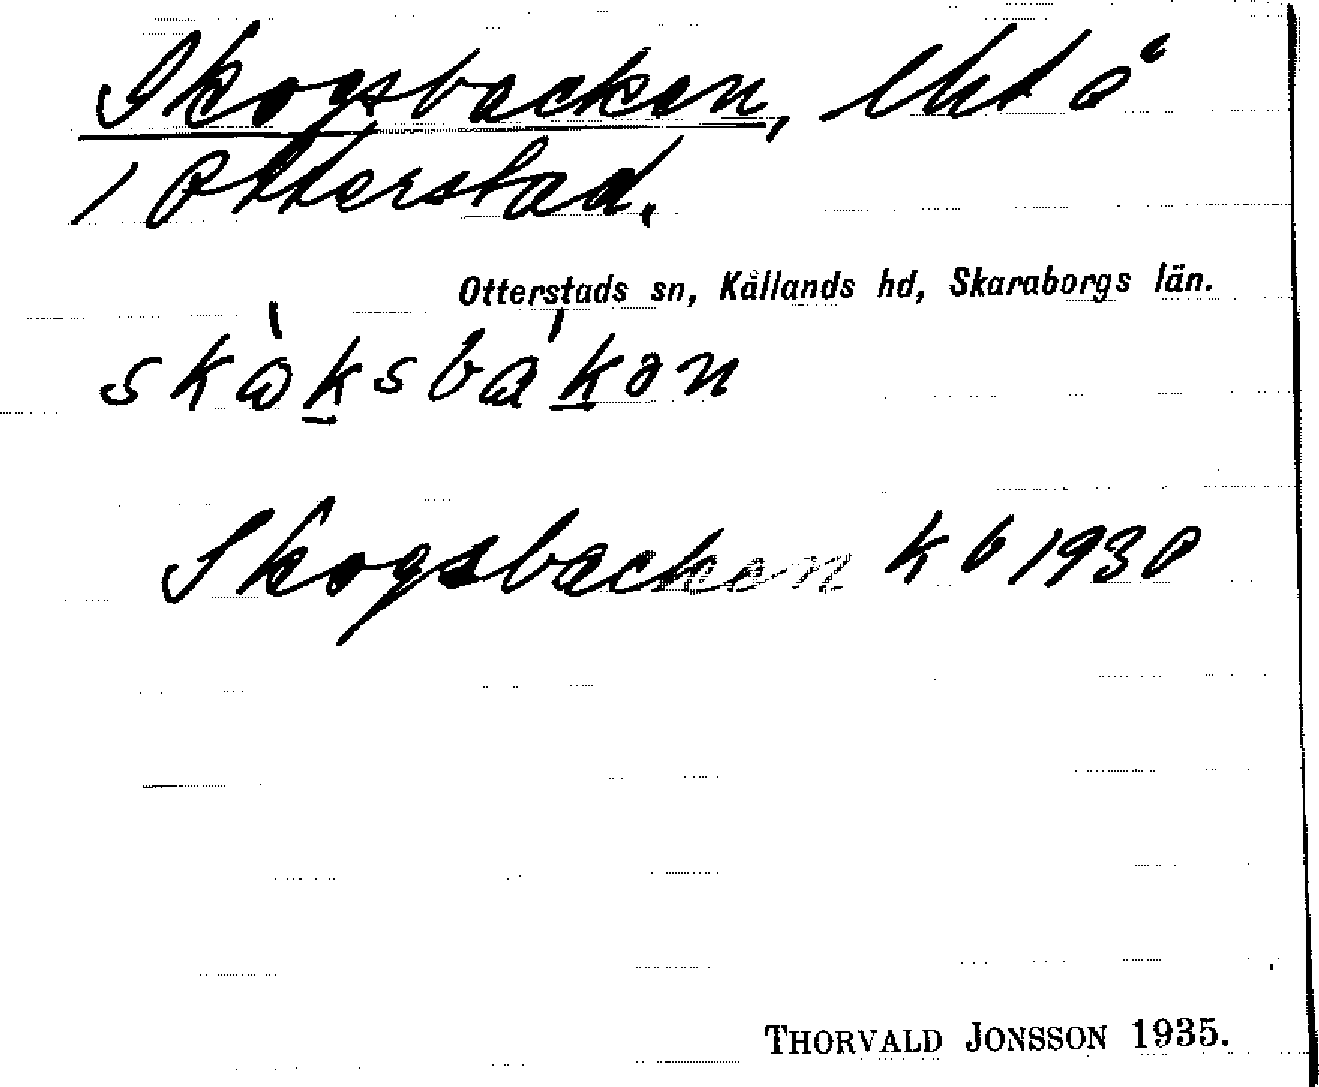 Skogsbacken, lht å
1 Otterstad.
Otterstads sn, Kållands hd, Skaraborgs län.
skɷ̀ksbákən
Skogsbacken kb 1930
THORVALD JONSSON 1935.